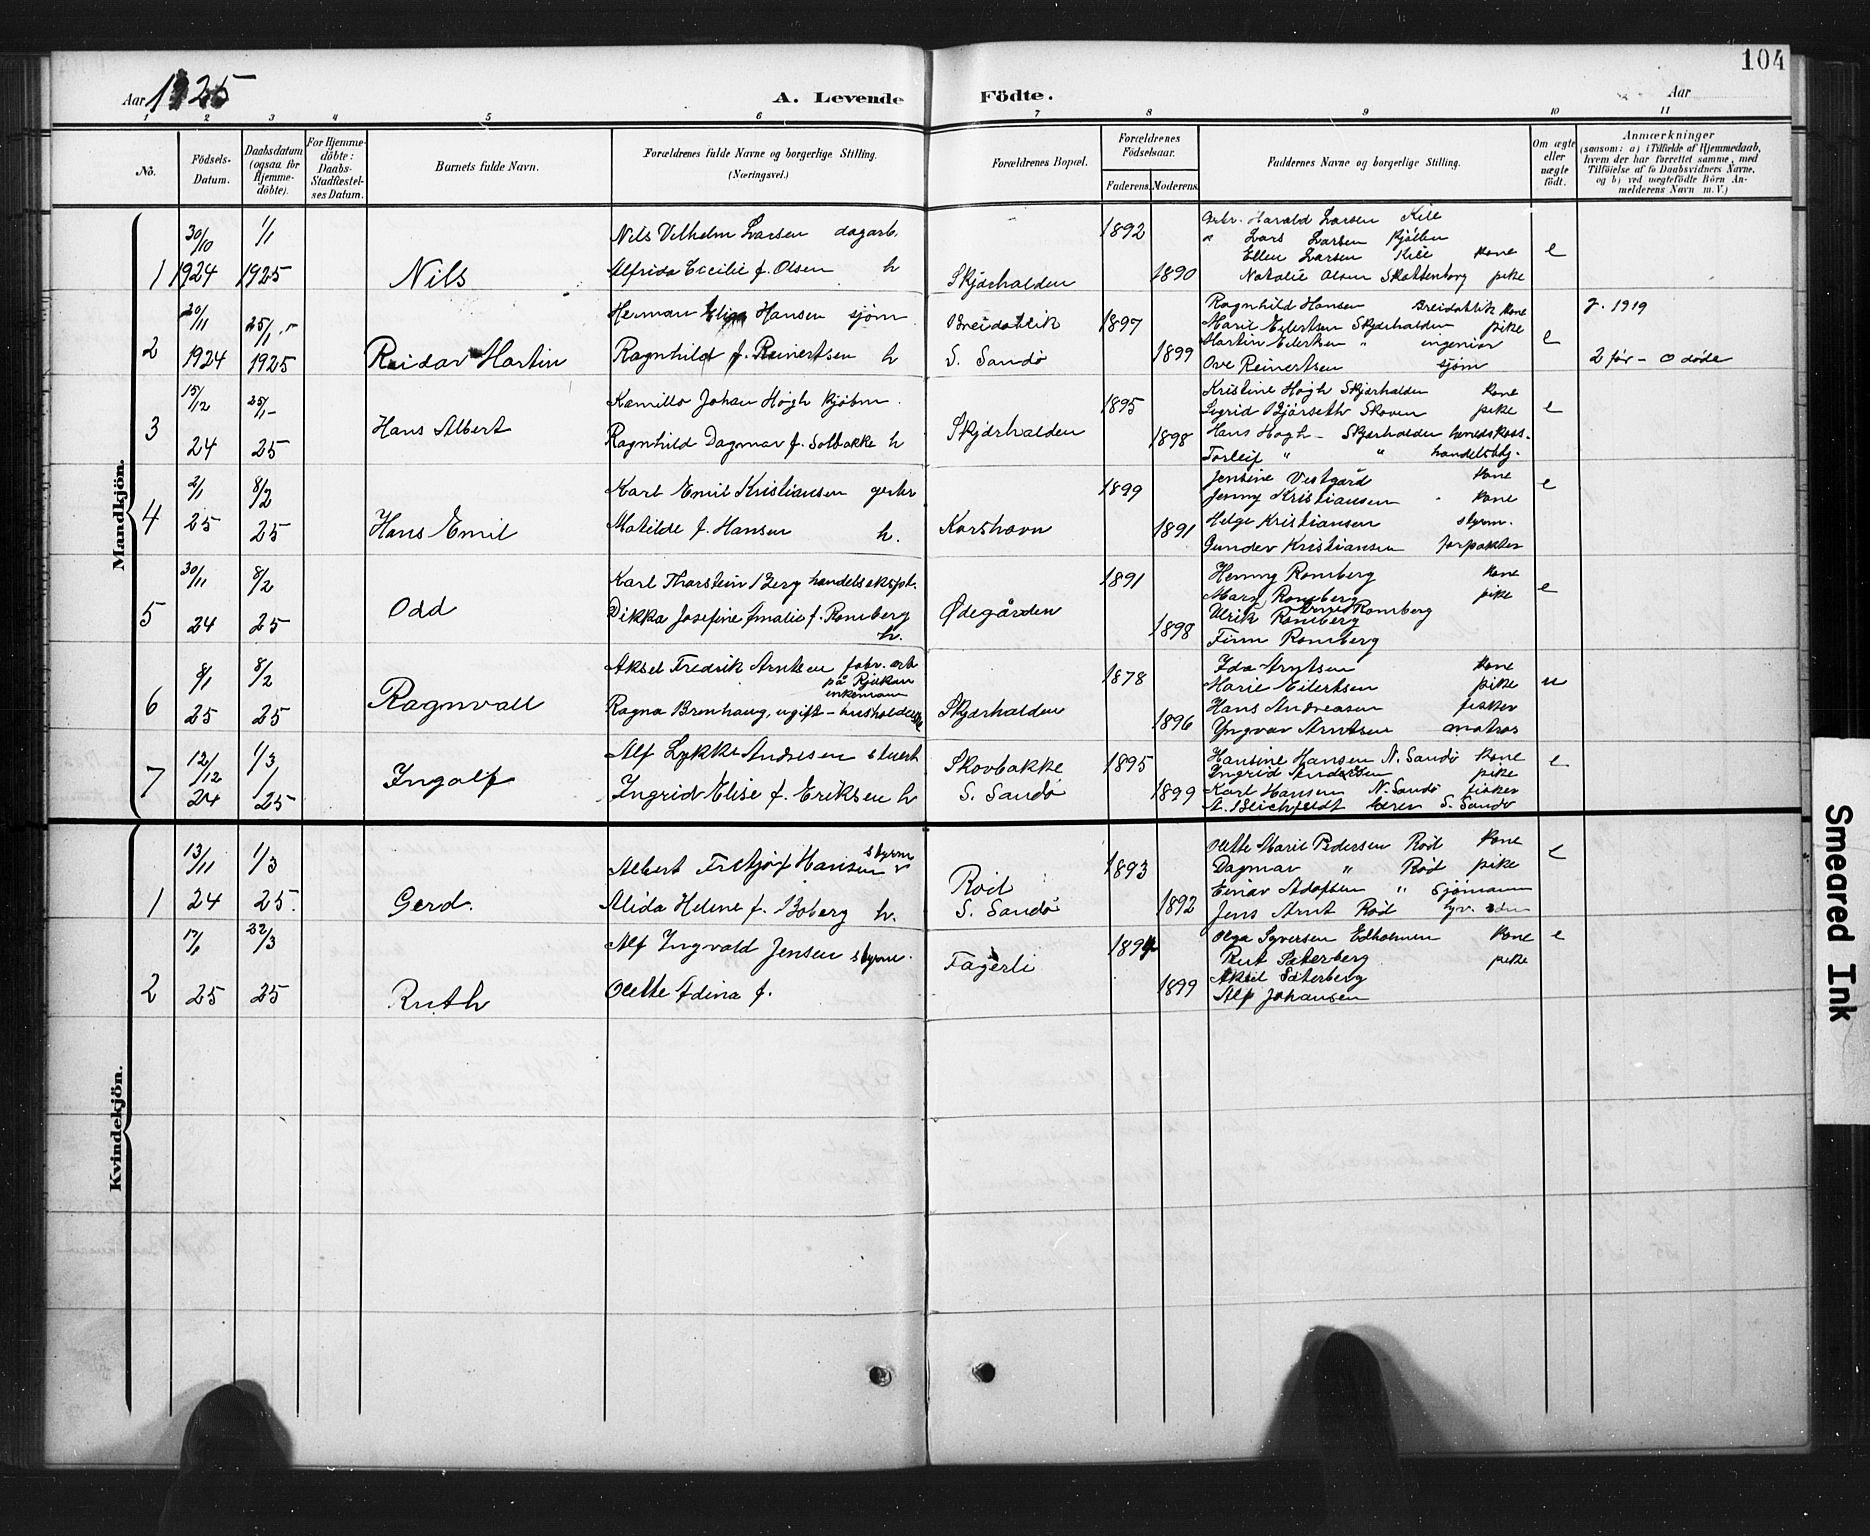 104
Aar 1925 A. Levende Födte. Aar
1 2 3 4 5 6 7 8 9 10 11
No.
Födsels-Datum.
Daabsdatum (ogsaa för Hjemme-döbte).
For Hjemme-döbte: Daabs-Stadfæstel-ses Datum.
Barnets fulde Navn.
Forældrenes fulde Navne og borgerlige Stilling.
(Næringsvei.)
Forældrenes Bopæl.
Forældrenes Födselsaar.
Faderens. Moderens.
Faddernes Navne og borgerlige Stilling.
Om ægte eller uægte födt.
Anmærkninger
(saasom: a) i Tilfælde af Hjemmedaab,
hvem der har forrettet samme, med
Tilföielse af to Daabsvidners Navne,
og b) ved uegtefödte Börn An-
melderens Navn m. V.)
Mandkjön.
1 30/10 1924 1/1 1925 Nils
Nils Vilhelm Larsen dagarb.
Alfrida Cecilie f. Olsen h
Skjærhalden 1892 1890
Harald Larsen Kile
" Lars Larsen kjøbm
Ellen Larsen Kile kone
Natalie Olsen Skottenborg pike
e
2 20/11 1924 25/1 1925 Reidar Martin
Herman Hansen sjøm
Ragnhild f. Reinertsen h
Breidablik
S. Sandö
1897 1899
Ragnhild Hansen Breidablik kone
Marie Eilertsen Skjærhalden pike
Martin Eilertsen " ingeniør
Ove Reinertsen sjøm
e
g. 1919
2 før - 0 døde
3 15/12 24 25/1 25 Hans Albert
Kamillo Johan Høgh kjøbm.
Ragnhild Dagmar f. Solbakke h
Skjærhalden 1895 1898
Kristine Høgh Skjærhalden kone
Sigrid Bjørseth Skoven pike
Hans Høgh - Skjærhalden herredskass.
Torleif " " handelsbtj.
e
4 2/1 25 8/2 25 Hans Emil
Karl Emil Kristiansen gerbr
Matilde f. Hansen h.
Korshavn 1899 1891
Jensine Vestgård kone
Jenny Kristiansen kone
Helge Kristiansen styrm.
Gunder Kristiansen forpakter
e
5 30/11 24 8/2 25 Odd
Karl Thorstein Berg handelsekspt.
Dikka Josefine Amalie f. Romberg
h.
Ødegården 1891 1898
Henny Romberg kone
Mary Romberg pike
Ulrik Romberg Romberg
Finn Romberg
e
6 8/1 25 8/2 25 Ragnvall
Aksel Fredrik Arntsen fabr. arb
på Rjukan
enkemann
Ragna Brenhaug, ugift - husholderske
Skjærhalden 1878 1896
Ida Arntsen kone
Marie Eilertsen pike
Hans Andreasen fisker
Yngvar Arntsen matros
u
7 12/12 24 1/3 25 Ingolf
Alf Lykke Andresen stuert
Ingrid Elise f. Eriksen h
Skovbakke
S. Sandö
1895 1899
Hansine Hansen N. Sandö kone
Ingrid Andersen pike
Karl Hansen N. Sandö fisker
A. Blichfeldt lærer S. Sandö
e
Kvindekjön.
1 13/11 24 1/3 25. Gerd.
styrm
Albert Fritjof Hansen
Alida Helene f. Boberg h.
Röd
S. Sandö
1893 1892
Olette Marie Pedersen Röd kone
Dagmar " Röd pike
Einar Adolfsen " sjömann
Jens Arnt Röd
e
2 25 22/3 25 Ruth
Alf Ingvald Jensen styrm.
Olette Adina f.
Fagerli 1899
Olga Syversen Edholmen kone
Rut Sæterberg pike
Aksel Sæterberg
Alf Johansen
e
Smeared Ink